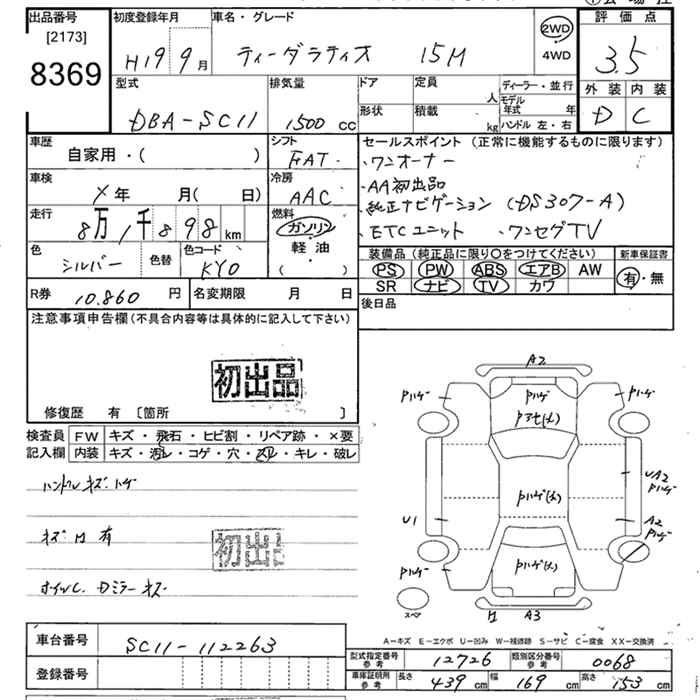 出品番号
[2173]
8369
初度登録年月
H19 9月
車名・グレード
ティーダラティオ 15M
2WD
4WD
評価点
3.5
外装 内装
D C
型式
DBA-SC11
排気量
1500 cc
ドア
形状
定員
人
積載
kg
ディーラー・並行
モデル年式 年
ハンドル 左・右
車歴
自家用・( )
シフト
FAT
車検
年 月( 日)
冷房
AAC
走行
8万1千898km
燃料
ガソリン
軽・油
( )
色
シルバー
色替
色コード
KY0
セールスポイント (正常に機能するものに限ります)
・ワンオーナー
・AA初出品
・純正ナビゲーション (DS307-A)
・ETCユニット ・ワンセグTV
装備品 (純正品に限り○をつけてください)
PS PW ABS エアB AW
SR ナビ TV カワ
新車保証書
有・無
R券
10.860 円
名変期限 月 日
後日品
注意事項申告欄 (不具合内容等は具体的に記入して下さい)
初出品
修復歴 有 〔箇所 〕
検査員
記入欄
FW キズ・飛石・ヒビ割・リペア跡・×要
内装 キズ・汚レ・コゲ・穴・スレ・キレ・破レ
ハンドルキズ・ハゲ
キズ M 有
初出品
ホイルC. Dミラーキズ
A2
Pハゲ
Pハゲ
Pハゲ
Pハゲ(大)
UA2
Pハゲ
U1
A2
Pハゲ
Pハゲ
Pハゲ(大)
スペア
A3
A-キズ E-エクボ U-凹み W-補修跡 S-サビ C-腐食 XX-交換済
車台番号
SC11-112263
登録番号
型式指定番号
参考
12726
類別区分番号
参考
0068
車庫証明用
参考
長さ 439 cm 幅 169 cm 高さ 153 cm